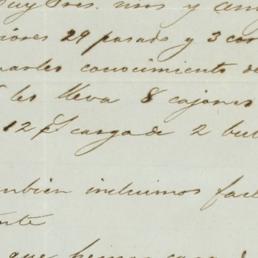 Muy Sres. mios y am
riores 29 pasado y 3 cor
conocimiento de
les lleva 8 cajones
12 carga de 2 bul
tambien incluimos fac
ente
que hemos